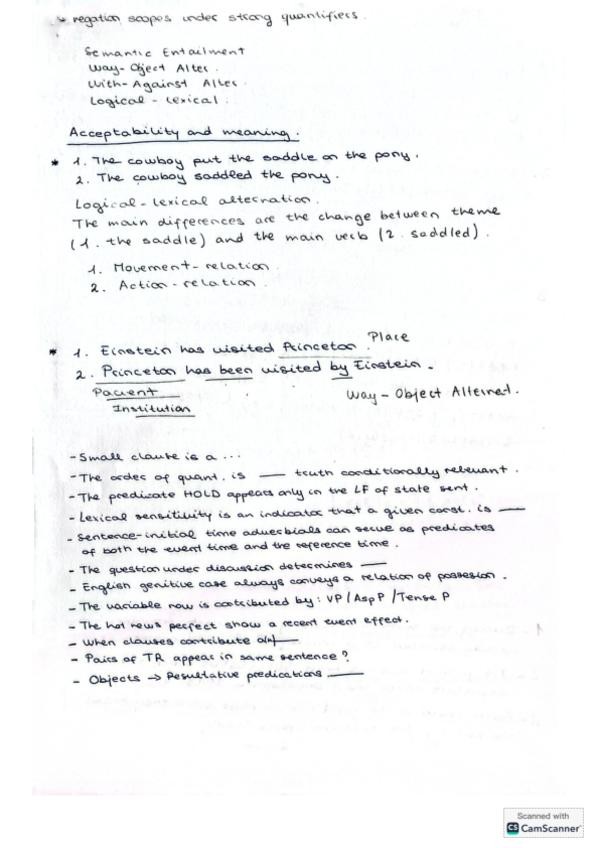 ↳ negation scopes under strong quantifiers.
Semantic Entailment
Way-Object Alter.
With-Against Alter.
Logical-Lexical.
Acceptability and meaning.
* 1. The cowboy put the saddle on the pony.
2. The cowboy saddled the pony.
Logical-lexical alternation.
The main differences are the change between theme
(1. the saddle) and the main verb (2. saddled).
1. Movement-relation.
2. Action-relation.
* 1. Einstein has visited Princeton. Place
2. Princeton has been visited by Einstein.
Pacient
Institution
Way-Object Alternat.
- Small clause is a ...
- The order of quant. is ___ truth conditionally relevant.
- The predicate HOLD appears only in the LF of state sent.
- Lexical sensitivity is an indicator that a given const. is ___
- Sentence-initial time adverbials can serve as predicates
of both the event time and the reference time.
- The question under discussion determines ___
- English genitive case always conveys a relation of possesion.
- The variable now is contributed by: VP / AspP / Tense P
- The hot news perfect show a recent event effect.
- When clauses contribute a(n) ___
- Pairs of TR appear in same sentence?
- Objects → Resultative predications ___
Scanned with
CS CamScanner